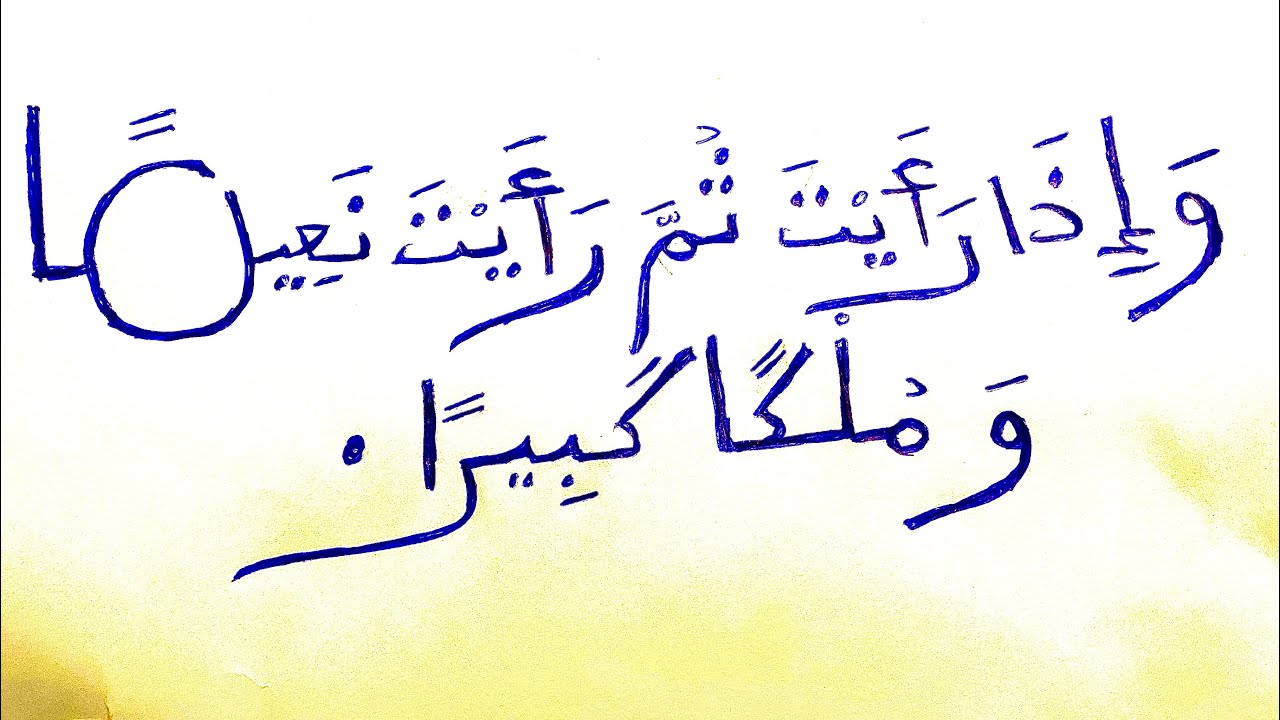 وَإِذَا رَأَيْتَ ثُمَّ رَأَيْتَ نَعِيمًا
وَ مُلْكًا كَبِيرًا.